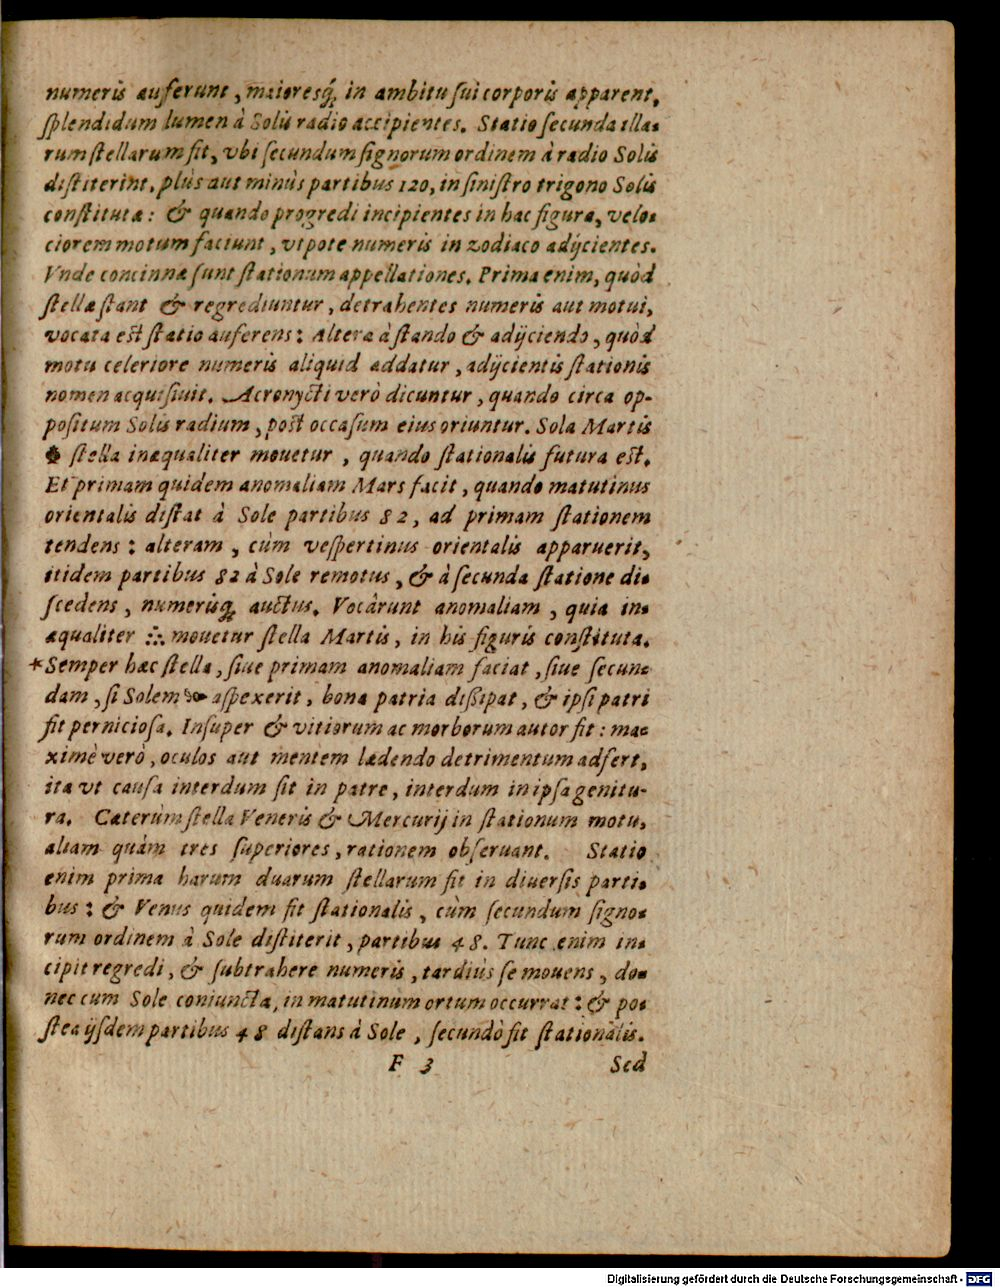 numeris auferunt, maioresq́; in ambitu sui corporis apparent,
splendidum lumen à Solis radio accipientes. Statio secunda illa-
rum stellarum fit, vbi secundum signorum ordinem à radio Solis
distiterint, plùs aut minùs partibus 120, in sinistro trigono Solis
constitutæ: & quando progredi incipientes in hac figura, velo-
ciorem motum faciunt, vtpote numeris in zodiaco adijcientes.
Vnde concinnæ sunt stationum appellationes. Prima enim, quòd
stellæ stant & regrediuntur, detrahentes numeris aut motui,
vocata est statio auferens: Altera à stando & adijciendo, quòd
motu celeriore numeris aliquid addatur, adijcientis stationis
nomen acquisiuit. Acronycti verò dicuntur, quando circa op-
positum Solis radium, post occasum eius oriuntur. Sola Martis
stella inæqualiter mouetur, quando stationalis futura est.
Et primam quidem anomaliam Mars facit, quando matutinus
orientalis distat à Sole partibus 82, ad primam stationem
tendens: alteram, cùm vespertinus orientalis apparuerit,
itidem partibus 82 à Sole remotus, & à secunda statione di-
scedens, numerisq́; auctus. Vocârunt anomaliam, quia in-
æqualiter ∴ mouetur stella Martis, in his figuris constituta.
*Semper hæc stella, siue primam anomaliam faciat, siue secun-
dam, si Solem aspexerit, bona patria dissipat, & ipsi patri
fit perniciosa. Insuper & vitiorum ac morborum autor fit: ma-
ximè verò, oculos aut mentem lædendo detrimentum adfert,
ita vt causa interdum sit in patre, interdum in ipsa genitu-
ra. Cæterùm stella Veneris & Mercurij in stationum motu,
aliam quàm tres superiores, rationem obseruant. Statio
enim prima harum duarum stellarum fit in diuersis parti-
bus: & Venus quidem fit stationalis, cùm secundum signo-
rum ordinem à Sole distiterit, partibus 48. Tunc enim in-
cipit regredi, & subtrahere numeris, tardiùs se mouens, do-
nec cum Sole coniuncta, in matutinum ortum occurrat: & po-
stea ijsdem partibus 48 distans à Sole, secundò fit stationalis.
F 3 Sed
Digitalisierung gefördert durch die Deutsche Forschungsgemeinschaft - DFG